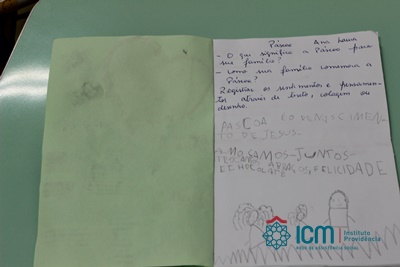 Páscoa Ana Laura
- O que significa a Páscoa para
sua família?
- Como sua família comemora a
Páscoa?
Registrar os sentimentos e pensamen-
tos através de texto, colagem ou
desenho.
PASCOA É O RENASCIMEN
TO DE JESUS
AMOSAMOS-JUNTOS-
CHOCOLATE
FELICIDADE
ICM Instituto
Providência
REDE DE ASSISTÊNCIA SOCIAL